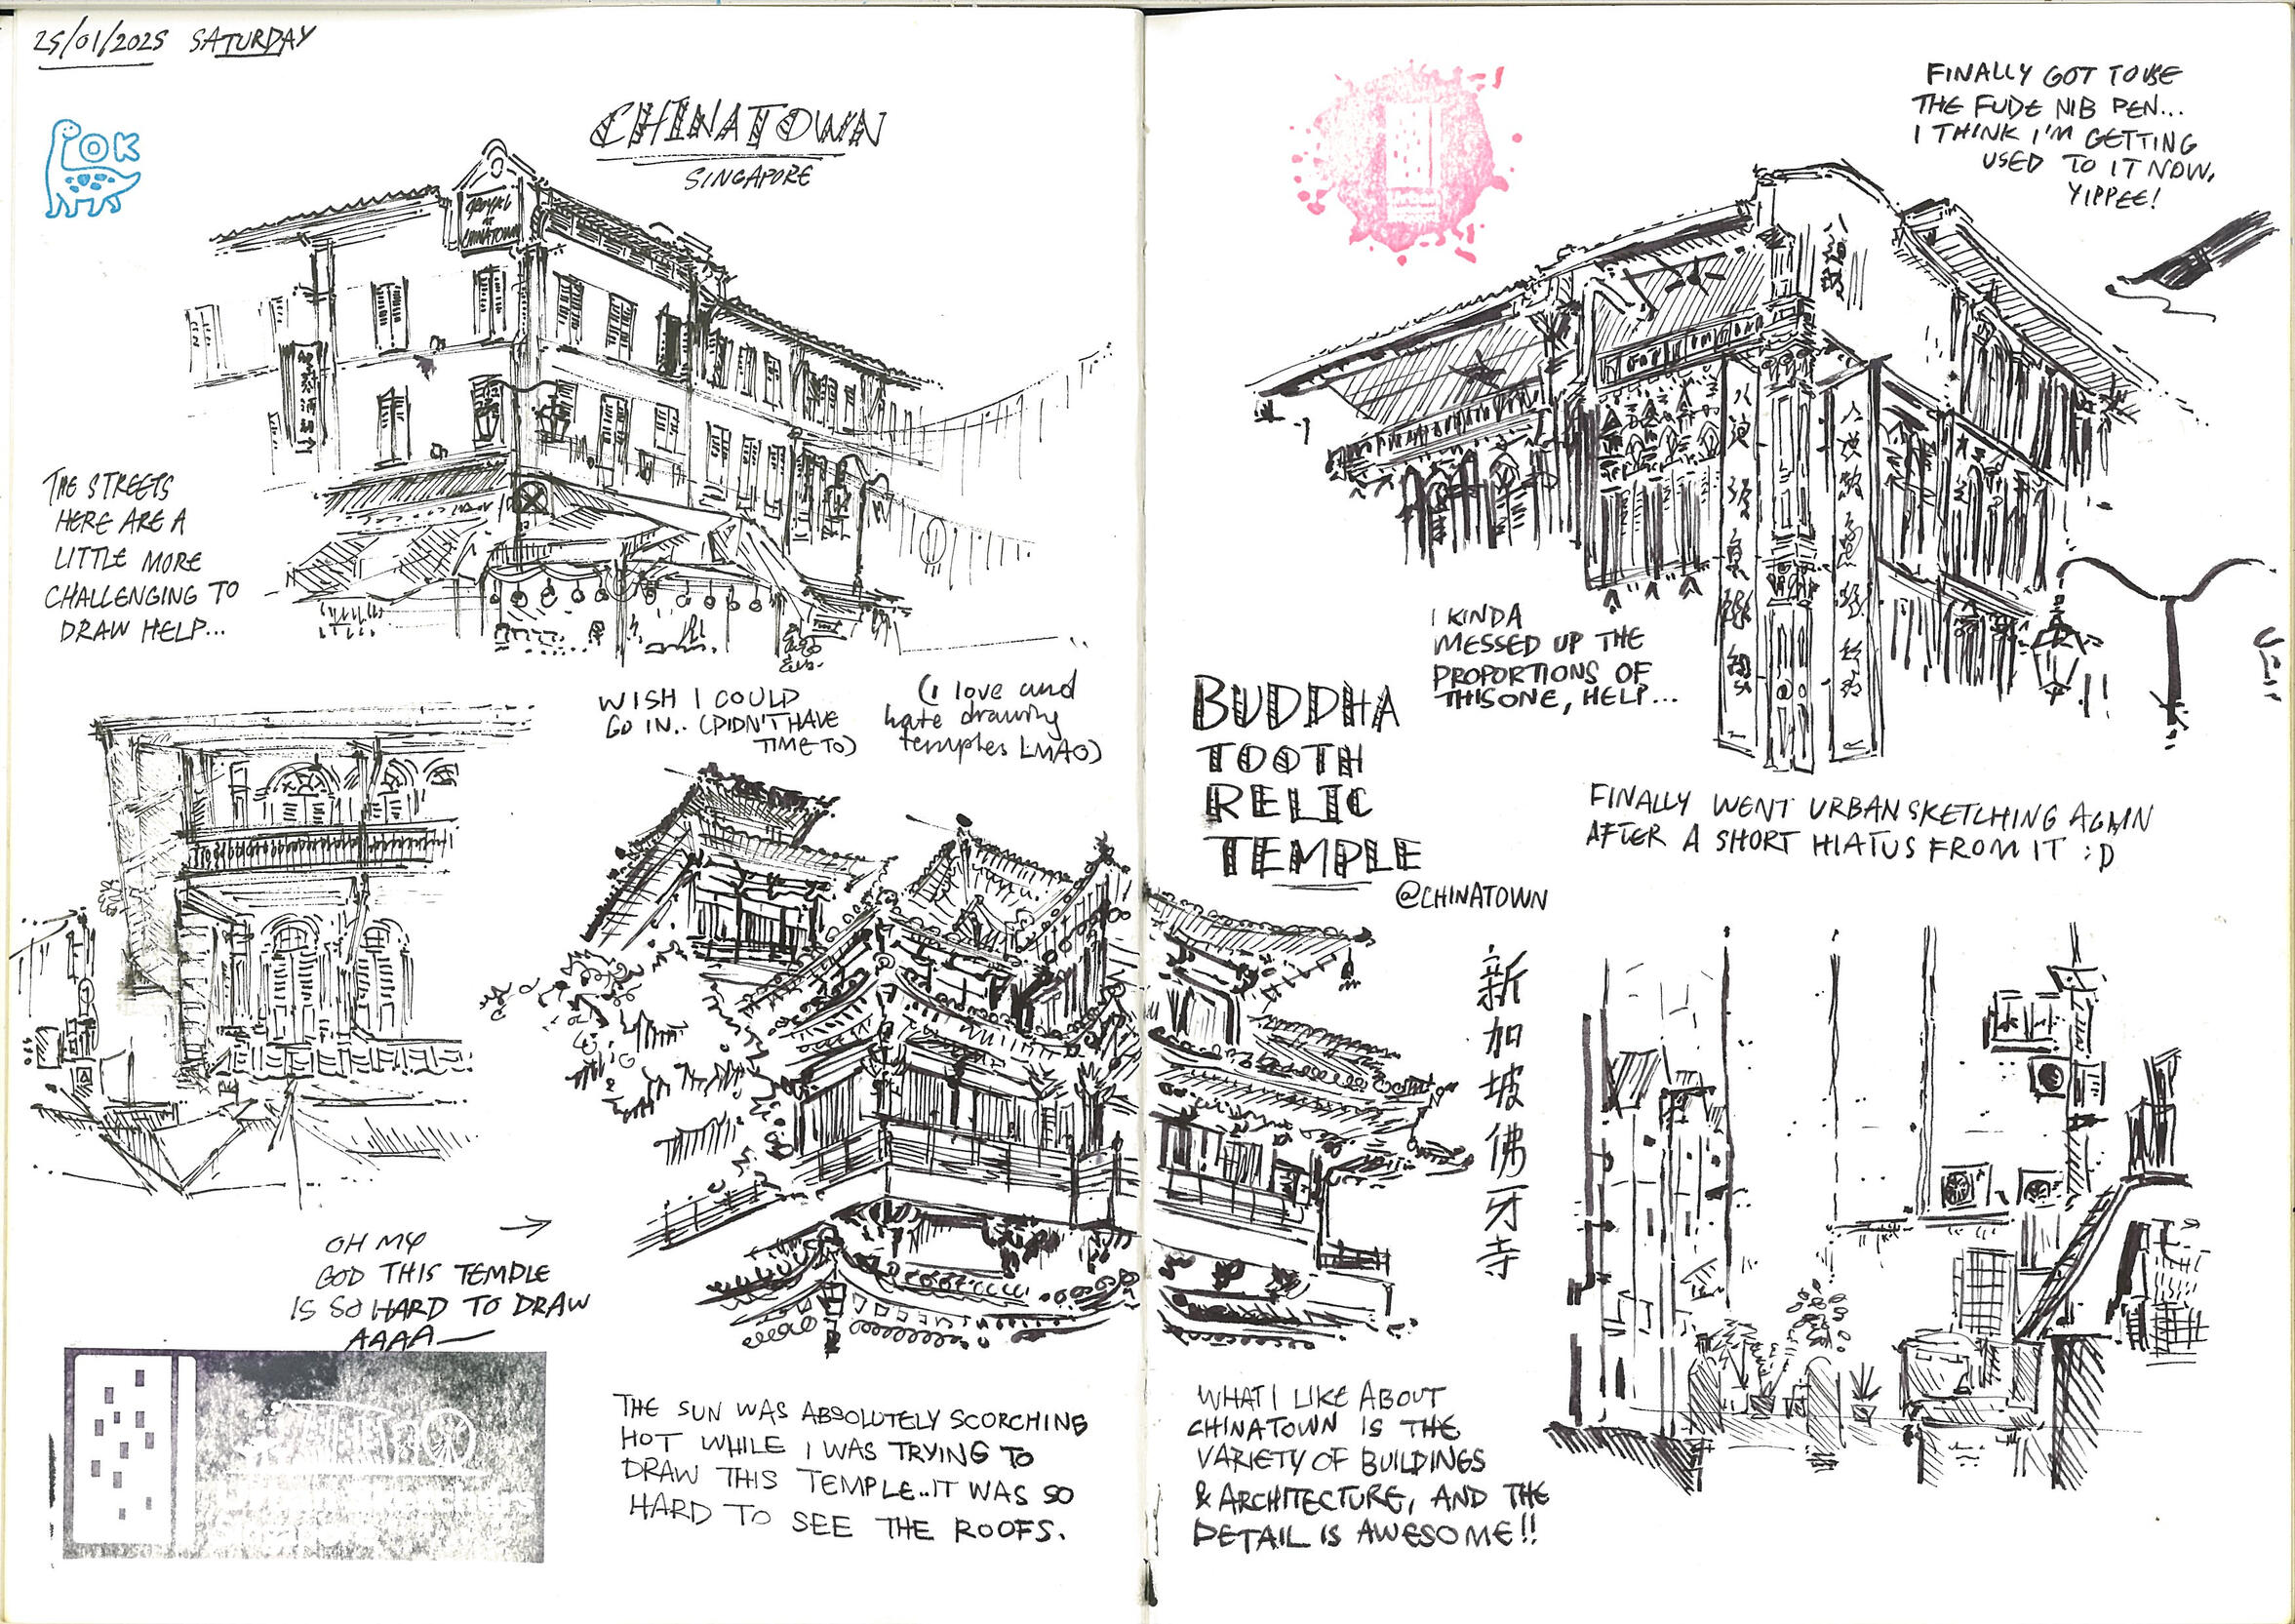 25/01/2025 SATURDAY
OK
CHINATOWN
SINGAPORE
ROYAL
AT
CHINATOWN
THE STREETS
HERE ARE A
LITTLE MORE
CHALLENGING TO
DRAW HELP...
WISH I COULD
GO IN.. (DIDN'T HAVE
TIME TO)
(I love and
hate drawing
temples LMAO)
OH MY
GOD THIS TEMPLE
IS SO HARD TO DRAW
AAAA—
THE SUN WAS ABSOLUTELY SCORCHING
HOT WHILE I WAS TRYING TO
DRAW THIS TEMPLE..IT WAS SO
HARD TO SEE THE ROOFS.
FINALLY GOT TO USE
THE FUDE NIB PEN...
I THINK I'M GETTING
USED TO IT NOW,
YIPPEE!
I KINDA
MESSED UP THE
PROPORTIONS OF
THIS ONE, HELP...
BUDDHA
TOOTH
RELIC
TEMPLE
@CHINATOWN
FINALLY WENT URBAN SKETCHING AGAIN
AFTER A SHORT HIATUS FROM IT :D
新加坡佛牙寺
WHAT I LIKE ABOUT
CHINATOWN IS THE
VARIETY OF BUILDINGS
& ARCHITECTURE, AND THE
DETAIL IS AWESOME!!